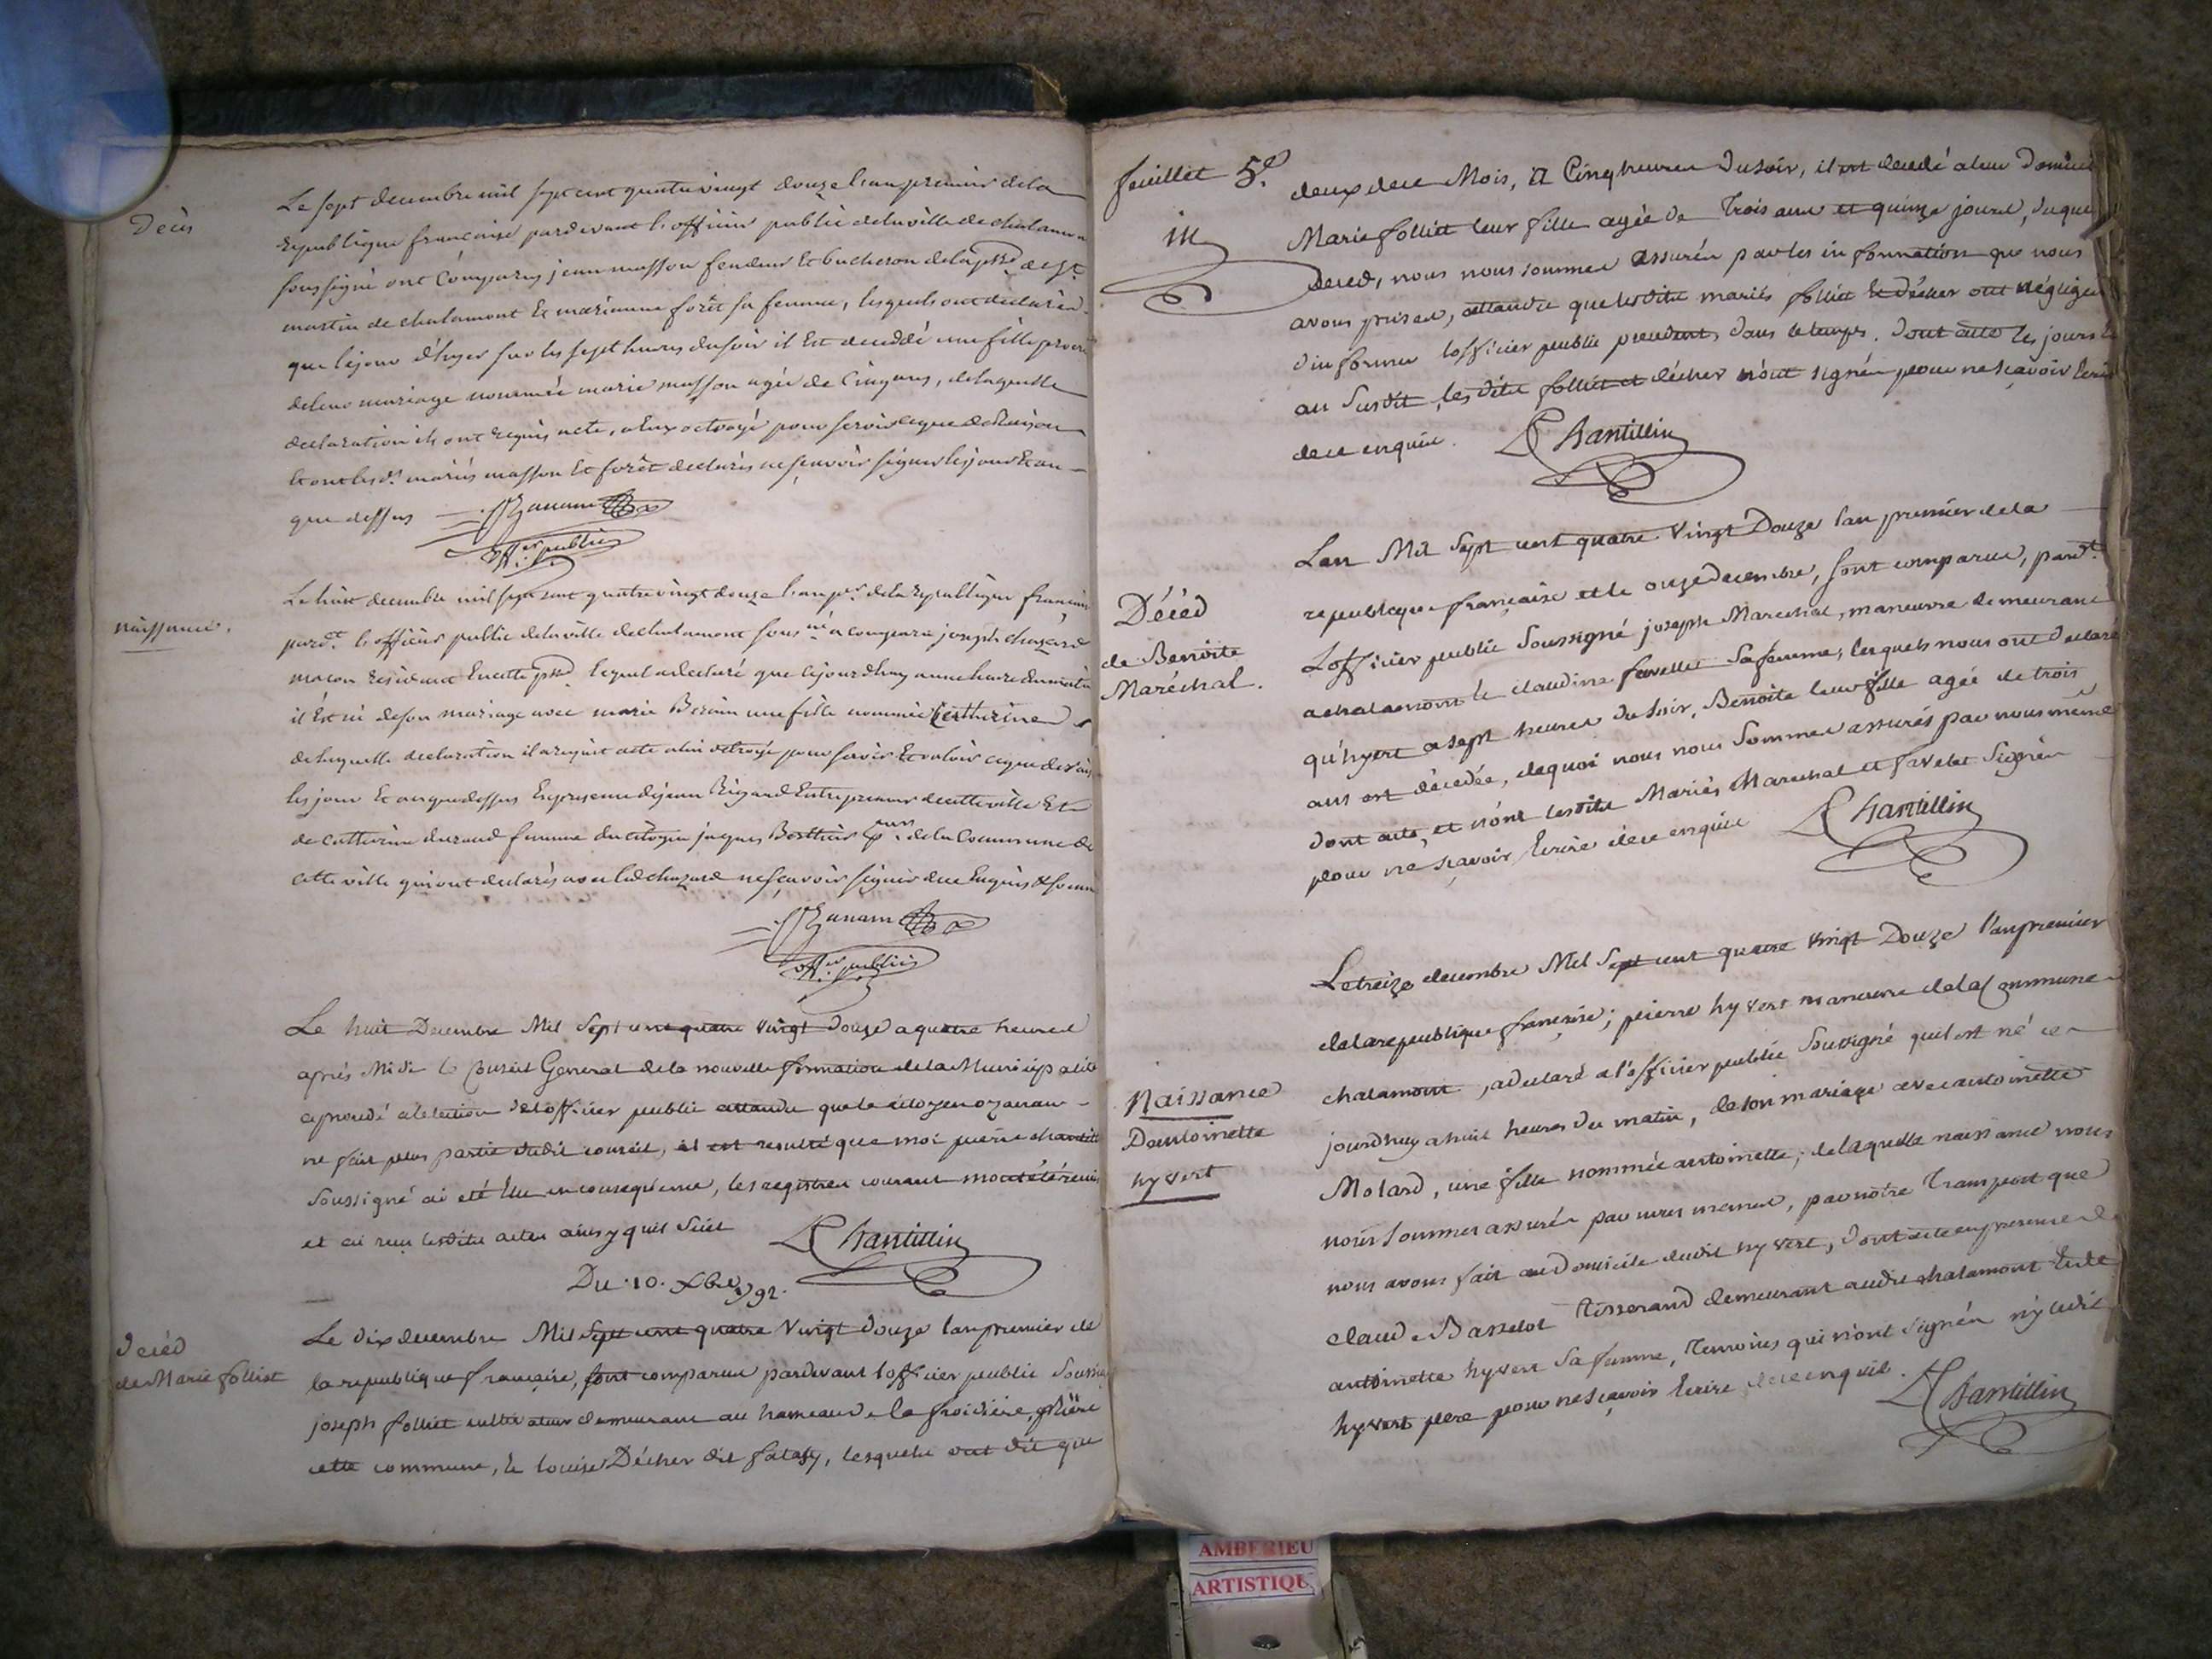 Décès
Le sept decembre mil sept cent quatre vingt douze l'an premier de la
Republique francaise pardevant l'officier public de la ville de chalamon
soussigné ont Comparus jean masson fendeur Et bucheron de la psse de st
martin de chalamont Et marianne forêt sa femme, lesquels ont déclarés
que le jour d'hyer sur les sept heures du soir il Est deceddé une fille
de leur mariage nommée marie masson agée de Cinq ans, de laquelle
declaration ils ont Requis acte, a Eux octroyé pour servir ce que de Raison
Et ont lesd. mariés masson Et forêt declarés ne sçavoir signer les jour Et an
que dessus
offer. public
naissance.
Le huit decembre mil sept cent quatre vingt douze l'an per. de la Republique française
pardt. l'officier public de la ville de chalamont sous né a comparu joseph chazard
macon Résidant En cette psse lequel a declaré que cejourd'huy a une heure du matin
il Est né de son mariage avec marie une fille nommée Catherine
de laquelle declaration il a requis acte a lui octroyé pour servir Et valoir ce que de raison
les jour Et an que dessus En presence de jean Rigard Entrepreneur de cette ville Et
de catherine durand femme du citoyen jaques Berthier de la Commune de
cette ville qui ont declarés avec led. chazard ne sçavoir signer de ce Enquis
offer. public
Le huit Decembre Mil Sept cent quatre vingt douze a quatre heures
aprés Midi le Conseil General de la nouvelle formation de la Municipalité
a procédé a l'élection de l'officier public attandu que le citoyen ozanam
ne fait plus partie dudit conseil, il est resulté que moi pierre chantill
Soussigné ai eté Elu en consequence, les registres courant mont été remis
et ai reçu lesdits actes ainsy quil Suit
Chantillin
Du 10. Xbre 92.
décéd
de Marie folliet
Le dix decembre Mil Sept cent quatre Vingt douze lan premier de
la republique française, sont comparus pardevant l'officier public Soussig
joseph folliet cultivateur demeurant au hameau de la froidière
cette commune, & louise Décher dit fatasy, lesquels ont dit que
feuillet 5e.
deux de ce Mois, a Cinq heures du soir, il est décédé a leur Domicil
Marie folliet leur fille agée de Trois ans et quinze jours, duquel
deced, nous nous sommes assurés par les information que nous
avons prises, attandu que lesdits mariés folliet & décher ont négligés
d'informer l'officier public dans le temps. dont acte les jours &
an Susdit, les dits folliet et décher n'ont signés pour ne sçavoir Ecrire
de ce enquis. Chantillin
Décéd
de Benoite
Maréchal.
Lan Mil Sept cent quatre Vingt Douze lan premier de la
republique française et le onze decembre, sont comparus, pardt.
L'officier public Soussigné joseph Marechal, maneuvre demeurant
a chalamont & claudine favellet Sa femme, lesquels nous ont declaré
qu'hyert a sept heures du soir, Benoite leur fille agée de trois
ans est décedée, de quoi nous nous Sommes assurés par nous même
dont acte, et n'ont lesdits Mariés Marechal et favelet Signés
pour ne sçavoir Ecrire de ce enquis Chantillin
Naissance
Dantoinette
hyvert
Le treize decembre Mil Sept cent quatre vingt Douze l'an premier
de la republique française; pierre hyvert maneuvre de la Commune
chalamont, a declaré a l'officier public Soussigné quil est né ce
jourdhuy a huit heures du matin, de son mariage avec antoinette
Molard, une fille nommée antoinette; de laquelle naissance nous
nous sommes assurés par nous meme, par notre Transport que
nous avons fait au Domicile dudit hyvert, dont acte en presence de
claude Basselot Tisserand demeurant audit chalamont & de
antoinette hyvert Sa femme, Temoins qui n'ont signés ny ledit
hyvert pere pour ne sçavoir Ecrire de ce enquis. Chantillin
AMBERIEU
ARTISTIQU